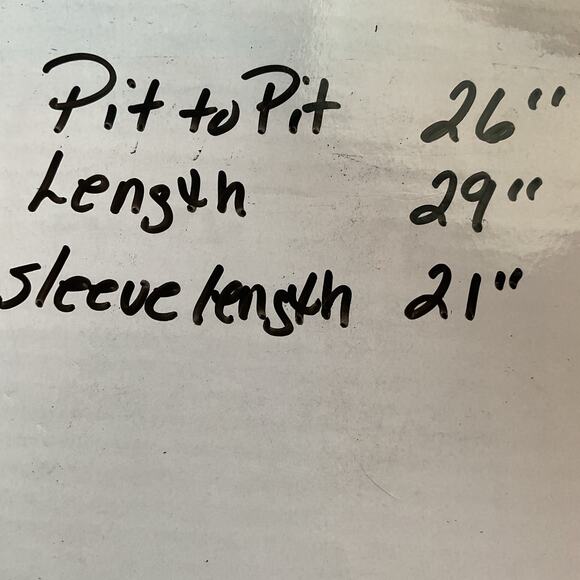 Pit to Pit 26"
Length 29"
Sleeve Length 21"